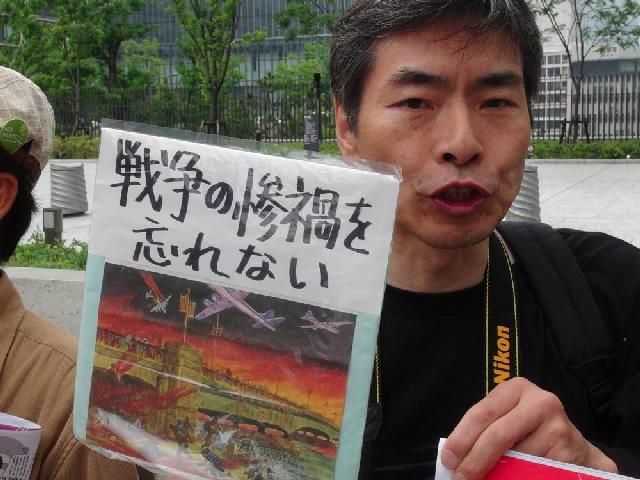 戦争の惨禍を
忘れない
Nikon